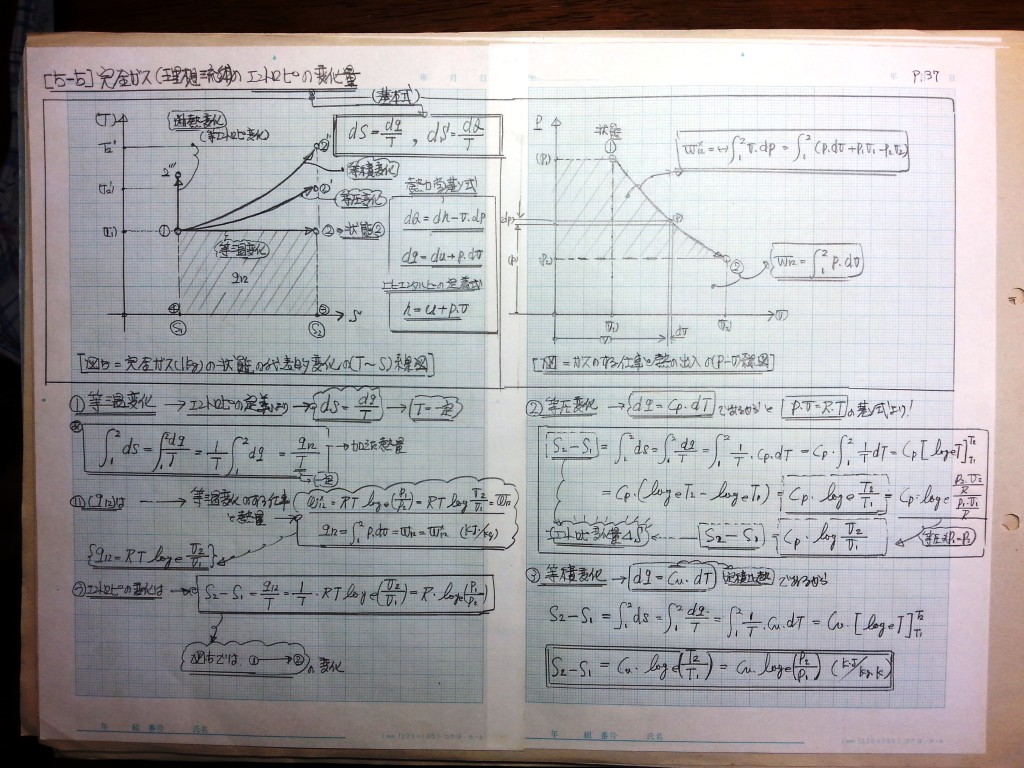 [5-5] 完全ガス(理想流体)の エントロピーの変化量
P.37
(T)
断熱変化
(等エントロピ変化)
(基本式)
dS = dq/T , dS = dQ/T
T2'
2''
②'
等積変化
等圧変化
状態②
(T1)
①
②
等温変化
q12
S
(S1)
(S2)
熱力学基本式
dQ = dh - v.dp
dq = du + p.dv
比エンタルピーの定義式
h = u + p.v
[図5 = 完全ガス(1kg)の状態の代表的変化の(T~S)線図]
P
状態
①
(P1)
dp
P
(P2)
②
(v1)
dv
(v2)
(v)
W12' = (-)∫₁² v.dp = ∫₁² (p.dv + p1v1 - p2v2)
W12 = ∫₁² p.dv
[図 = ガスのする仕事と熱の出入の(P-v)線図]
① 等温変化 → エントロピーの定義より → dS = dq/T → T=一定
∫₁² dS = ∫₁² dq/T = 1/T ∫₁² dq = q12/T → 加えた熱量
T → 一定
(q12)は → 等温変化のする仕事と熱量
W12' = RT loge(P1/P2) = RT log v2/v1 = W12
q12 = ∫₁² p.dv = W12 = W12' (kJ/kg)
{q12 = RT log e v2/v1}
エントロピの変化は → S2 - S1 = q12/T = 1/T · RT log e(v2/v1) = R · loge(P1/P2)
図5では ① → ② の変化
② 等圧変化 → dq = Cp.dT であるから と P.v = R.T の基本式より!
S2 - S1 = ∫₁² ds = ∫₁² dq/T = ∫₁² 1/T . Cp.dT = Cp · ∫₁² 1/T dT = Cp [log eT]T1T2
= Cp · (log eT2 - log eT1) = Cp · log e T2/T1 = Cp · log e (P2.v2/R)/(P1.v1/R)
エントロピ変化量ΔS ← S2 - S1 = Cp · log v2/v1 ← 等圧 P1=P2
③ 等積変化 → dq = Cv.dT 定積比熱 であるから
S2 - S1 = ∫₁² ds = ∫₁² dq/T = ∫₁² 1/T . Cv.dT = Cv · [log eT]T1T2
S2 - S1 = Cv · log e(T2/T1) = Cv · log e(P2/P1) (kJ/kg.k)
年 組 番号 氏名
年 組 番号 氏名